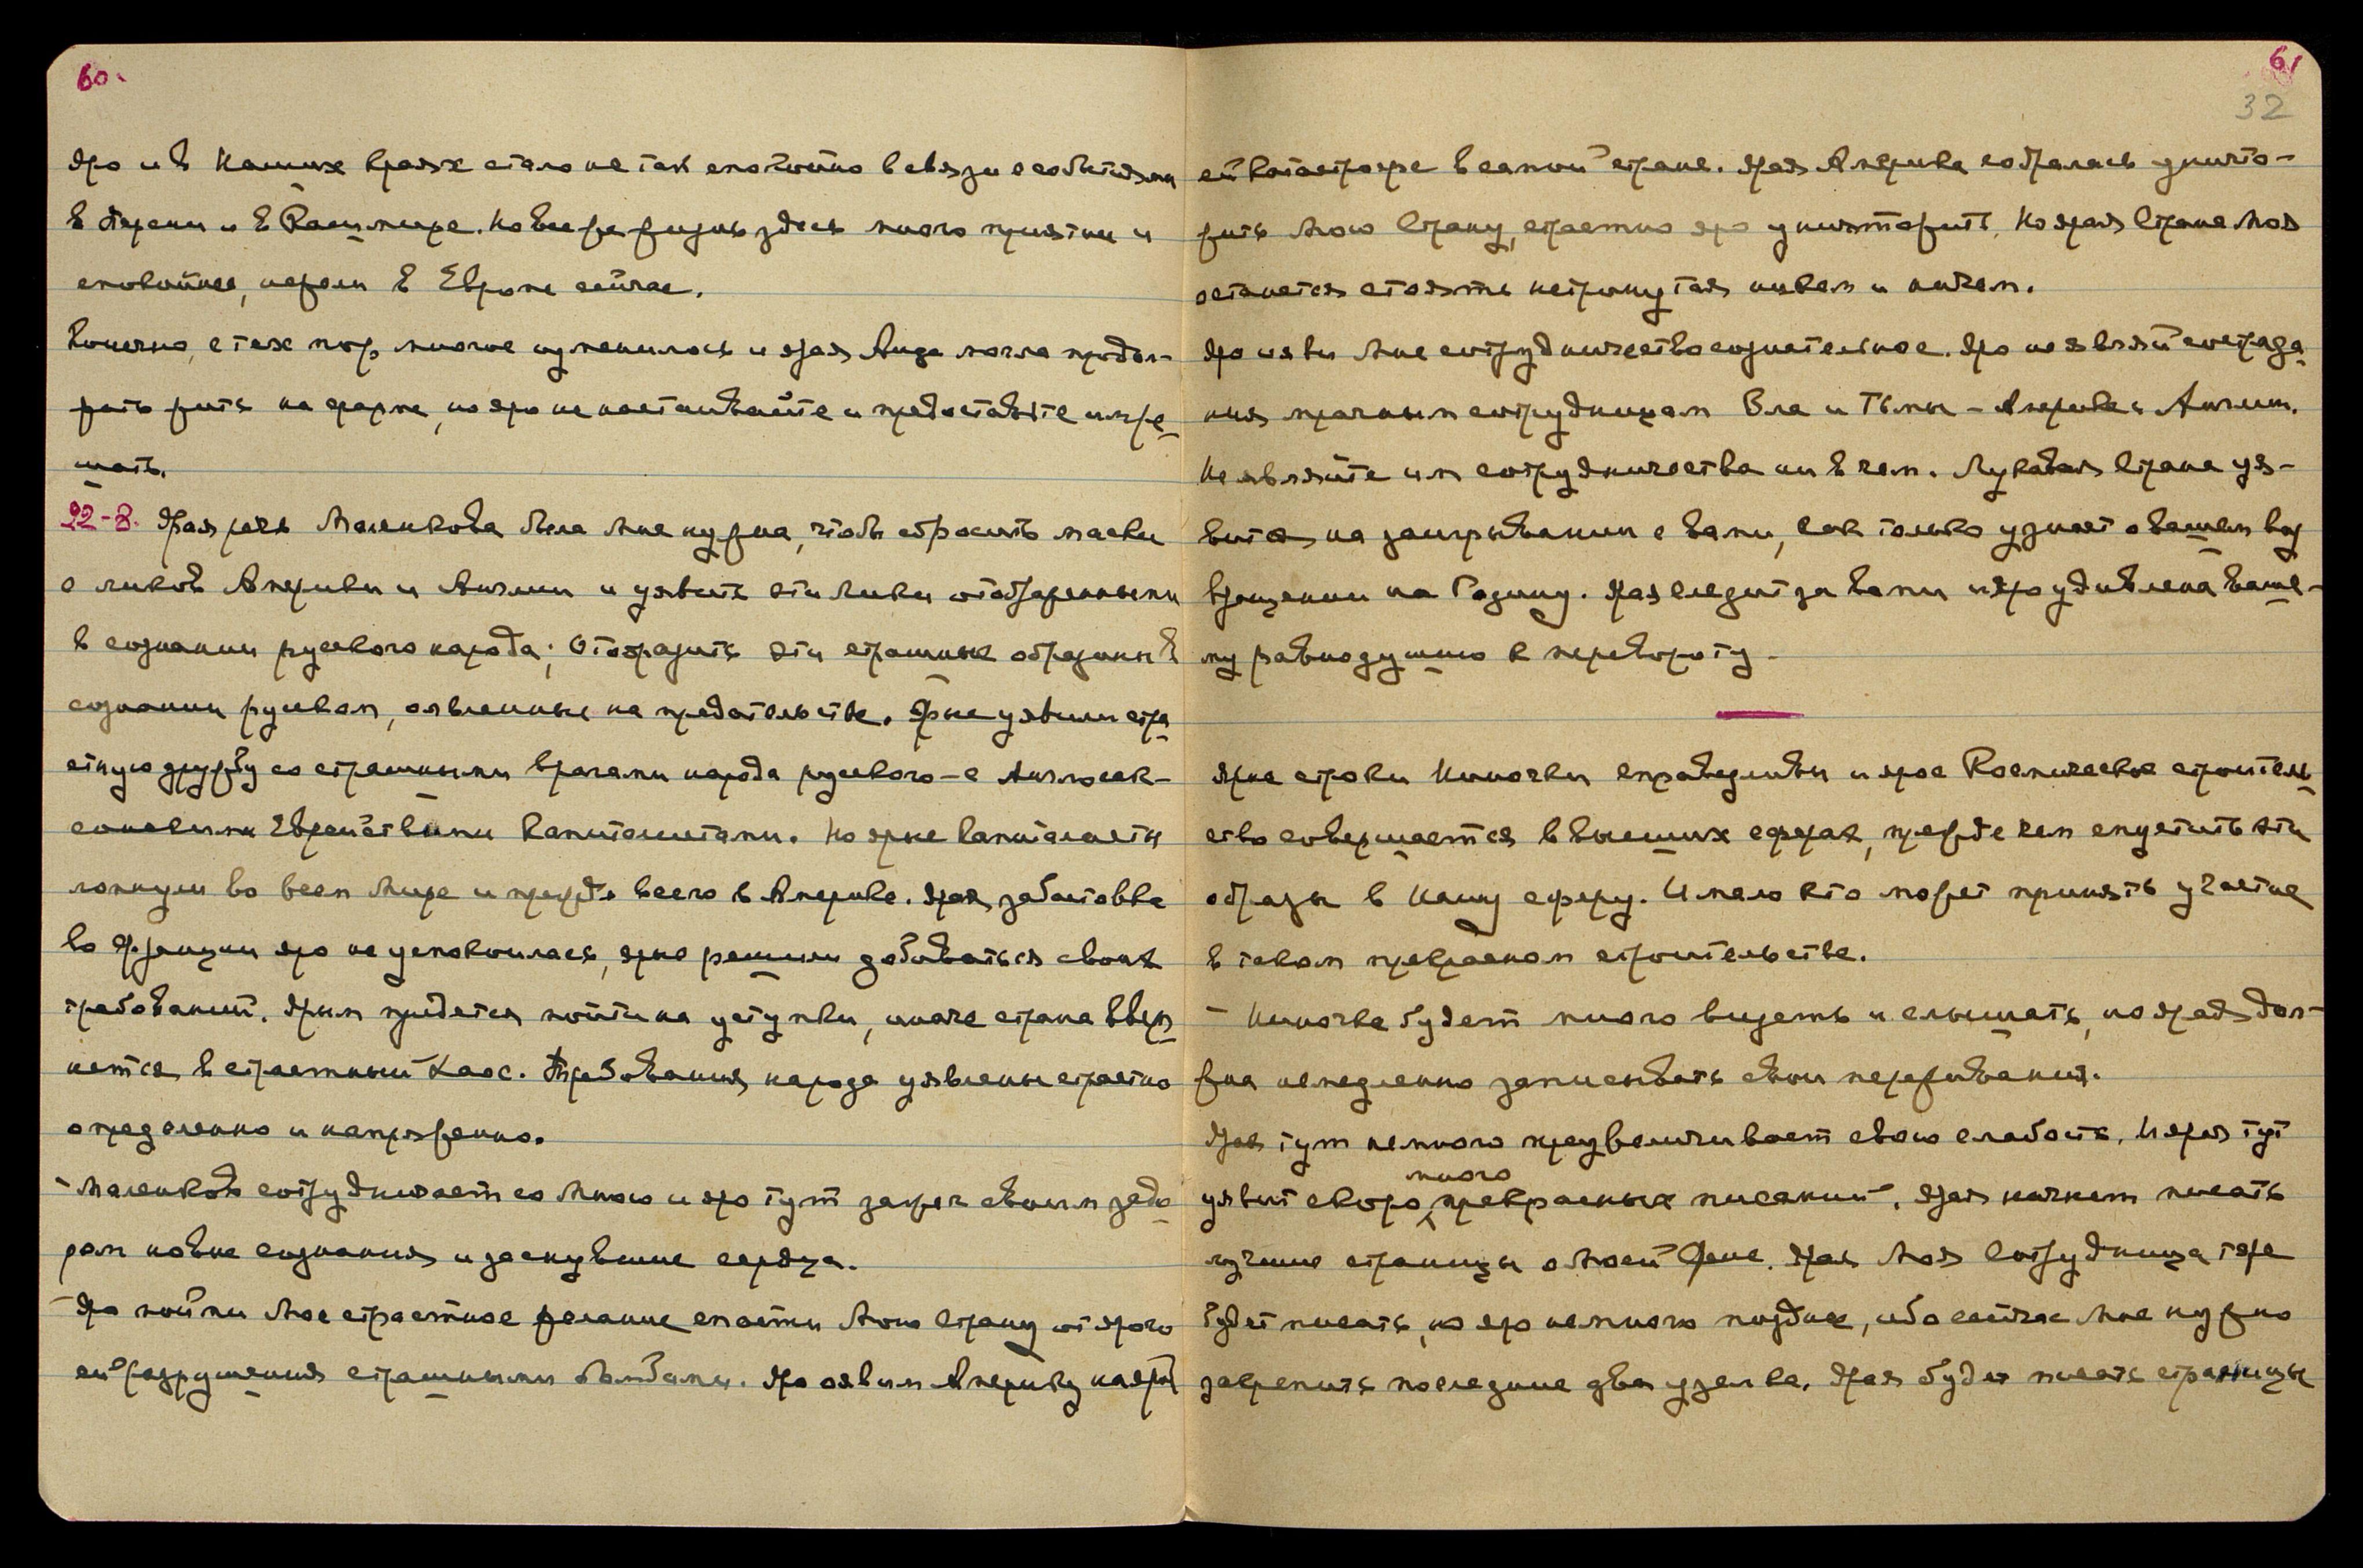 60.
Яро и в Наших краях стало не так спокойно в связи с событиями
в Персии и в Кашмире. Но все же жизнь здесь много приятнее и
спокойнее, нежели в Европе сейчас.
Конечно, с тех пор многое изменилось и ярая Аида могла продол-
жать жить на ферме, но яро не настаивайте и предоставьте им ре-
шать.
22-8. Ярая речь Маленкова была Мне нужна, чтобы сбросить маски
с ликов Америки и Англии и уявить эти лики отображенными
в сознании русского народа; Отобразить эти страшные образины в
сознании русском, оявленные на предательстве. Ярые уявили стра
стную дружбу со страшными врагами народа русского – с Англосак-
сонскими Еврейскими капиталистами. Но ярые капиталисты
лопнули во всем Мире и прежде всего в Америке. Ярая забастовка
во Франции яро не успокоилась, ярые решили добиваться своих
требований. Ярым придется пойти на уступки, иначе страна вверг
нется в страстный Хаос. Требования народа уявлены страстно
определенно и напряженно.
– Маленков сотрудничает со Мною и яро тут зажег своим задо
ром новые сознания и заснувшие сердца.
– Яро пойми Мое страстное желание спасти Мою Страну от ярого
ей разрушения страшными бомбами. Яро оявим Америку на ярой
61
32
ей катастрофе в самой стране. Ярая Америка собралась уничто-
жить Мою Страну, страстно яро уничтожить. Но ярая Страна Моя
останется стоять нетронутая никем и ничем.
Яро уяви Мне сотрудничество сознательное. Яро не являй сострада
ния мрачным сотрудницам Зла и Тьмы – Америке и Англии.
Не являйте им сотрудничества ни в чем. Лукавая Страна уя-
вится на заигрывании с вами, как только узнает о вашем воз
вращении на Родину. Ярая следит за вами и яро удивлена ваше-
му равнодушию к перевороту.
Ярые строки Ниночки справедливы и ярое Космическое строитель
ство совершается в высших сферах, прежде чем спустить эти
образы в нашу сферу. И мало кто может принять участие
в таком прекрасном строительстве.
– Ниночка будет много видеть и слышать, но ярая дол-
жна немедленно записывать свои переживания.
Ярая тут немного преувеличивает свою слабость. И ярая тут
уявит скоро много прекрасных писаний. Ярая начнет писать
лучшие страницы о Моей Жене. Ярая Моя Сотрудница тоже
будет писать, но яро немного позднее, ибо сейчас Мне нужно
закрепить последние два узелка. Ярая будет писать страницы